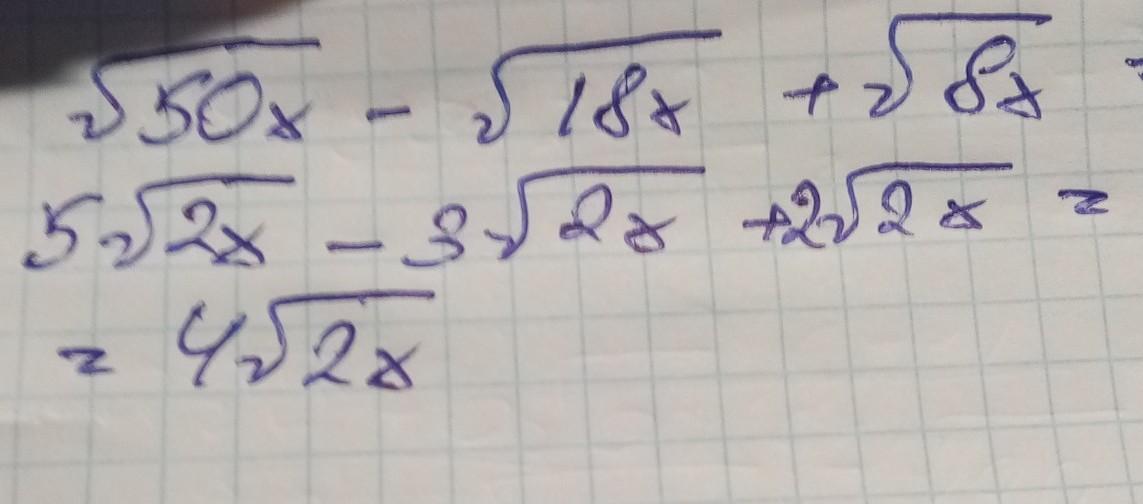 √50x - √18x + √8x =
5√2x - 3√2x + 2√2x =
= 4√2x